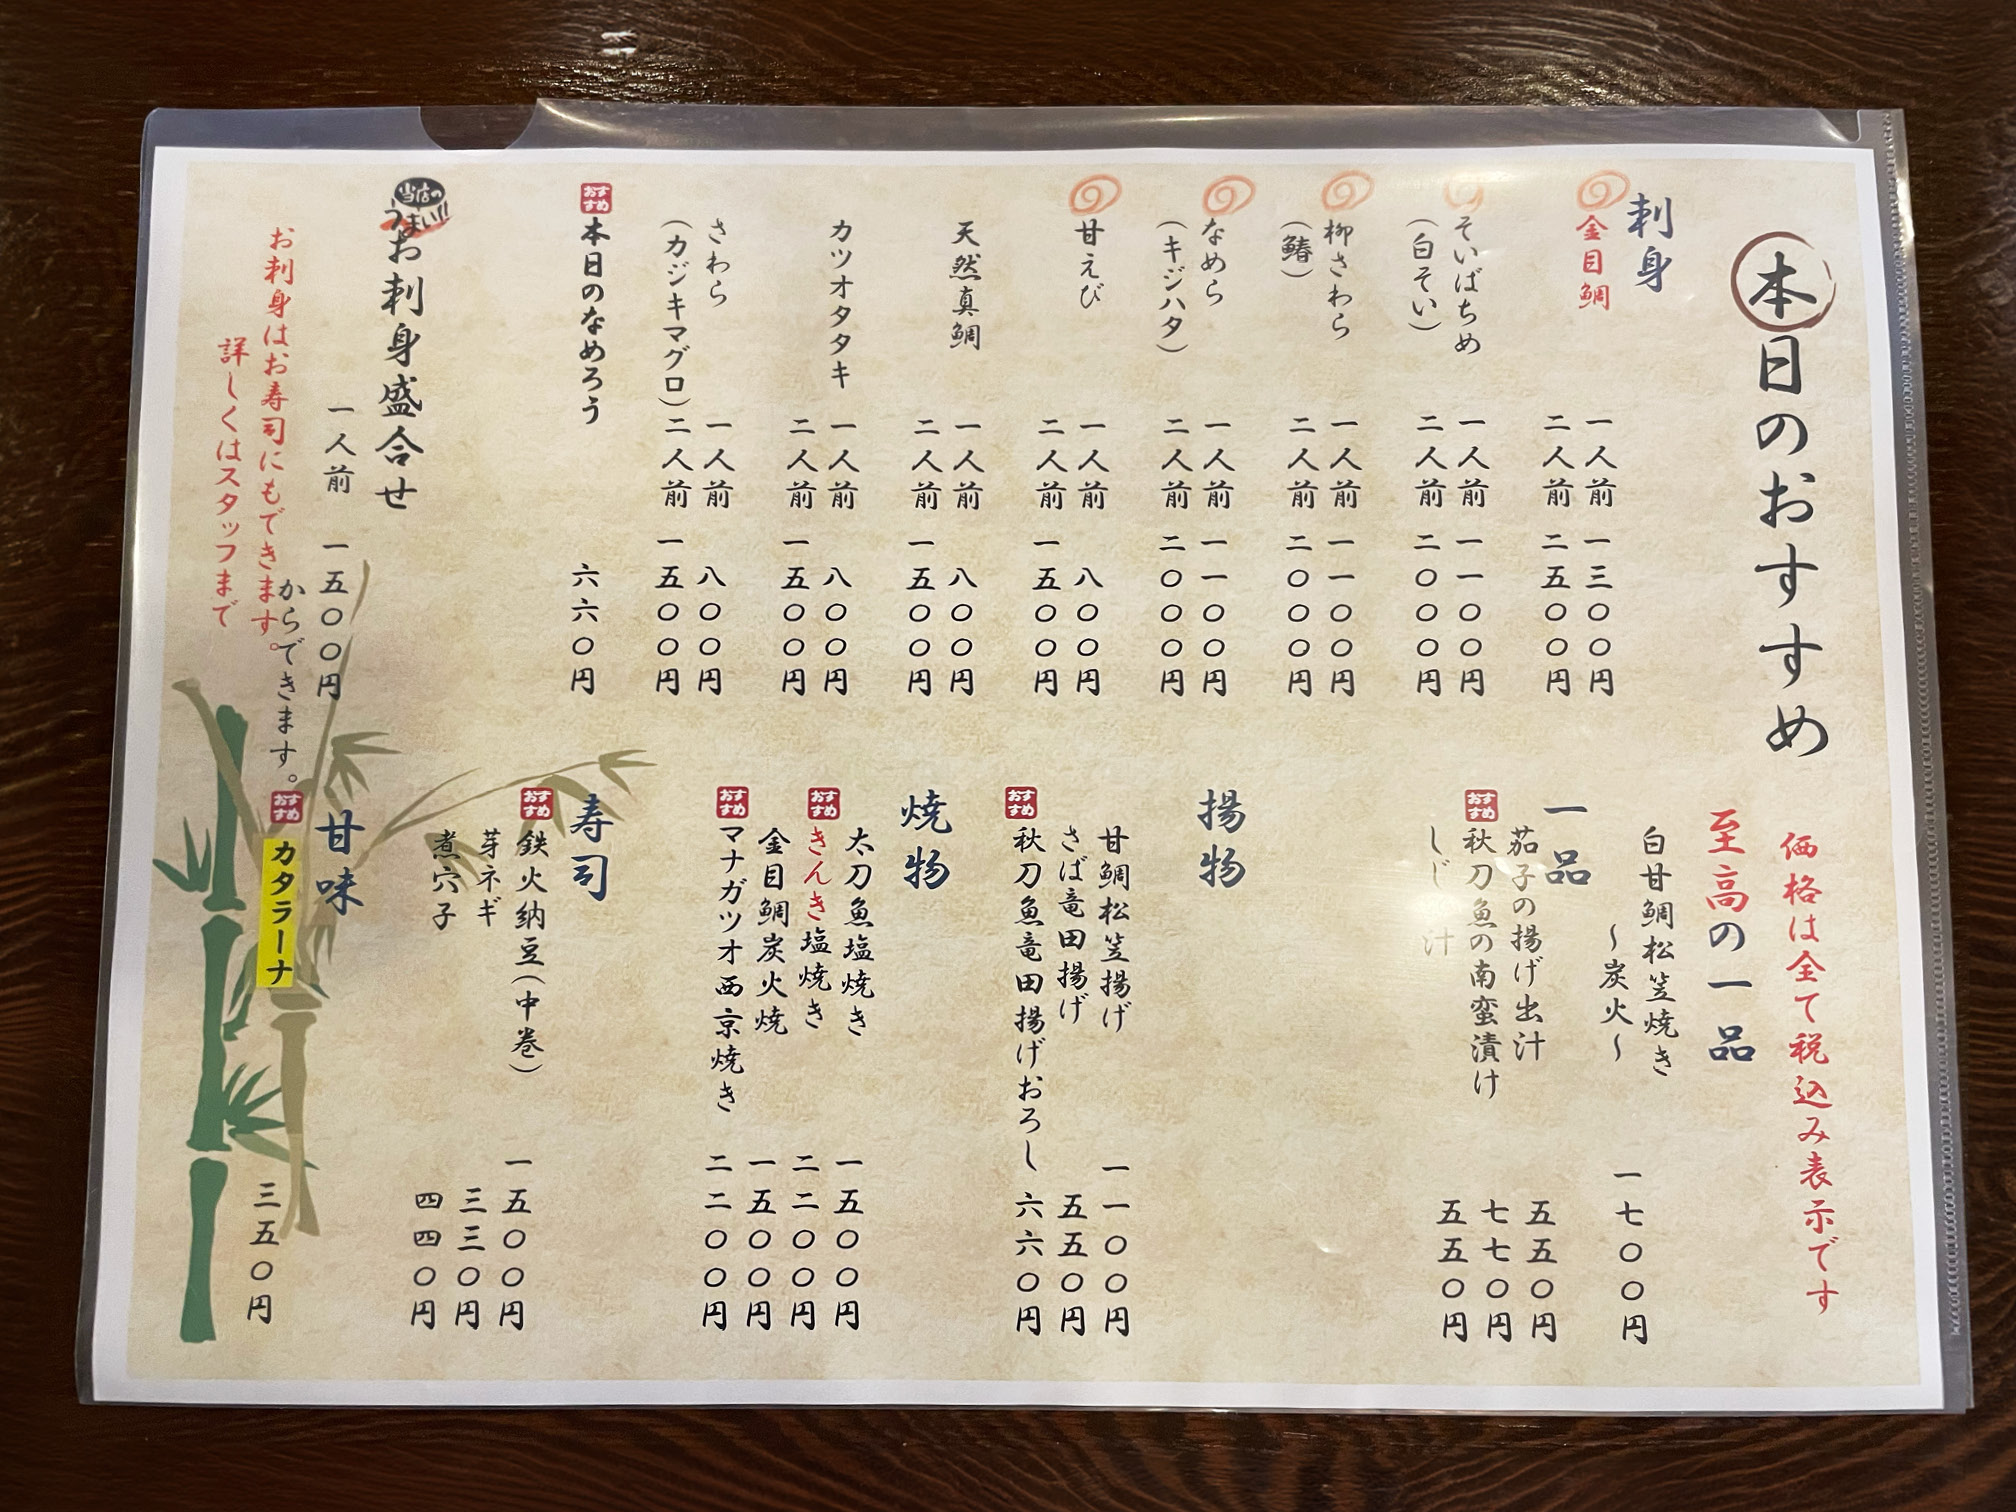 本日のおすすめ
価格は全て税込み表示です
刺身
金目鯛
一人前 一三〇〇円
二人前 二五〇〇円
そいばちめ
(白そい)
一人前 一一〇〇円
二人前 二〇〇〇円
柳さわら
(鰆)
一人前 一一〇〇円
二人前 二〇〇〇円
なめら
(キジハタ)
一人前 一一〇〇円
二人前 二〇〇〇円
甘えび
一人前 八〇〇円
二人前 一五〇〇円
天然真鯛
一人前 八〇〇円
二人前 一五〇〇円
カツオタタキ
一人前 八〇〇円
二人前 一五〇〇円
さわら
(カジキマグロ)
一人前 八〇〇円
二人前 一五〇〇円
おすすめ
本日のなめろう 六六〇円
当店の
うまい!!
お刺身盛合せ
一人前 一五〇〇円
からできます。
お刺身はお寿司にもできます。
詳しくはスタッフまで
至高の一品
白甘鯛松笠焼き
〜炭火〜
一七〇〇円
一品
茄子の揚げ出汁 五五〇円
おすすめ
秋刀魚の南蛮漬け 七七〇円
しじ 汁 五五〇円
揚物
甘鯛松笠揚げ 一一〇〇円
さば竜田揚げ 五五〇円
おすすめ
秋刀魚竜田揚げおろし 六六〇円
焼物
太刀魚塩焼き 一五〇〇円
おすすめ
きんき塩焼き 二二〇〇円
金目鯛炭火焼 一五〇〇円
おすすめ
マナガツオ西京焼き 二二〇〇円
寿司
おすすめ
鉄火納豆(中巻) 一五〇〇円
芽ネギ 三三〇円
煮穴子 四四〇円
甘味
おすすめ
カタラーナ 三五〇円